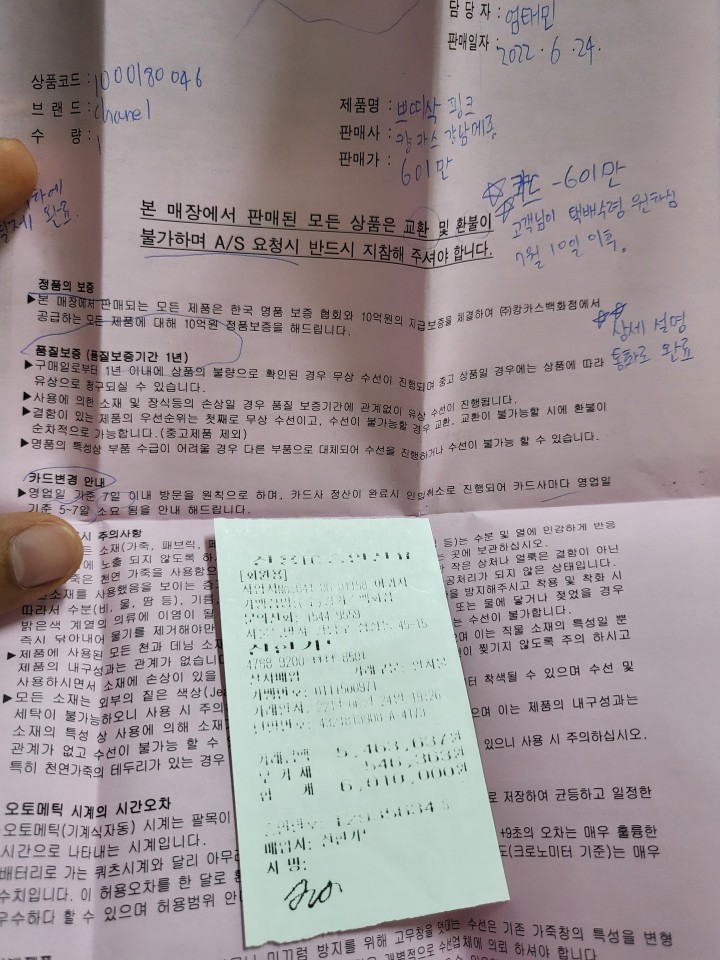 담 당 자 : 엄태민
판매일자 : 2022. 6. 24.
상품코드 : 1000180046
브 랜 드 : chanel
수 량 : 1
제품명 : 쁘띠삭 핑크
판매사 : 캉카스 강남메종
판매가 : 601만
완료.
-601만
고객님이 택배수령 원하심
7월 10일 이후.
본 매장에서 판매된 모든 상품은 교환 및 환불이
불가하며 A/S 요청시 반드시 지참해 주셔야 합니다.
상세 설명
통화로 완료
정품의 보증
▶본 매장에서 판매되는 모든 제품은 한국 명품 보증 협회와 10억원의 지급보증을 체결하여 ㈜캉카스백화점에서
공급하는 모든 제품에 대해 10억원 정품보증을 해드립니다.
품질보증 (품질보증기간 1년)
▶구매일로부터 1년 아내에 상품의 불량으로 확인된 경우 무상 수선이 진행되며 중고 상품일 경우에는 상품에 따라
유상으로 청구되실 수 있습니다.
▶사용에 의한 소재 및 장식등의 손상일 경우 품질 보증기간에 관계없이 유상 수선이 진행됩니다.
▶결함이 있는 제품의 우선순위는 첫째로 무상 수선이고, 수선이 불가능할 경우 교환, 교환이 불가능할 시에 환불이
순차적으로 가능합니다.(중고제품 제외)
▶명품의 특성상 부품 수급이 어려울 경우 다른 부품으로 대체되어 수선을 진행하거나 수선이 불가능 할 수 있습니다.
카드변경 안내
▶영업일 기준 7일 이내 방문을 원칙으로 하며, 카드사 정산이 완료시 인입취소로 진행되어 카드사마다 영업일
기준 5~7일 소요 됨을 안내 해드립니다.
시 주의사항
소재(가죽, 패브릭, 등)는 수분 및 열에 민감하게 반응
에 노출 되지 않도록 곳에 보관하십시오.
죽은 천연 가죽을 사용함으 작은 상처나 얼룩은 결함이 아닌
소재를 사용했음을 보이는 공처리가 되지 않은 상태입니다.
을 방지해주시고 착용 및 착화 시
따라서 수분(비, 물, 땀 등), 기름, 또는 물에 닿거나 젖었을 경우
밝은색 계열의 의류에 이염이 될 는 수선이 불가합니다.
즉시 닦아내어 물기를 제거해야만 며 이는 직물 소재의 특성일 뿐
▶제품에 사용된 모든 천과 데님 소재 이 찢기지 않도록 주의 하시고
제품의 내구성과는 관계가 없습니다
사용하시면서 소재에 손상이 있을 터 착색될 수 있으며 수선 및
▶모든 소재는 외부의 짙은 색상(Je
세탁이 불가능하오니 사용 시 주의 으며 이는 제품의 내구성과는
소재의 특성 상 사용에 의해 소재
관계가 없고 수선이 불가능 할 수 있으니 사용 시 주의하십시오.
특히 천연가죽의 테두리가 있는 경우
[회원용]
문의전화: 1544-9559
신한카드
4768-9200
일시불
가맹번호: 0111566971
5,463,637원
부 가 세 546,363원
합 계 6,010,000원
매입사: 신한카
서 명:
오토메틱 시계의 시간오차
오토메틱(기계식자동) 시계는 팔목이 로 저장하여 균등하고 일정한
시간으로 나타내는 시계입니다.
배터리로 가는 쿼츠시계와 달리 아무 +9초의 오차는 매우 훌륭한
수치입니다. 이 허용오차를 한 달로 (크로노미터 기준)는 매우
우수하다 할 수 있으며 허용범위
미끄럼 방지를 위해 고무창을 덧대는 수선은 기존 가죽창의 특성을 변형
개별적으로 수선업체에 의뢰 하셔야 합니다.